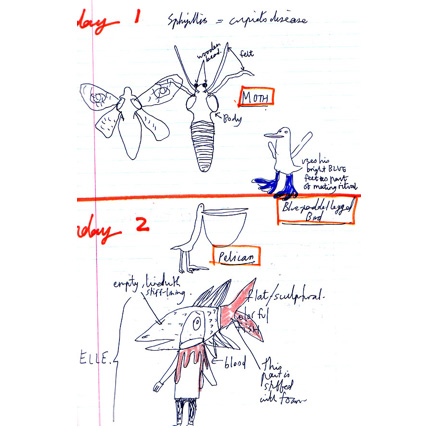 day 1
Sphyllis = cupids disease
wooden
bead
felt
MOTH
Body
uses his
bright BLUE
feet as part
of mating ritual
Blue-paddel legged
Bird
day 2
Pelican
empty, lined with
stiff-lining.
flat/sculptural.
colorful
ELLE.
blood
This
part is
stuffed
with foam